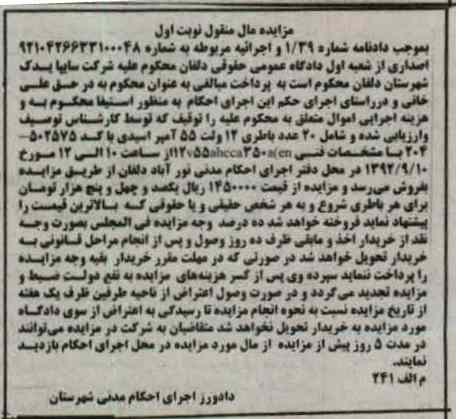 مزایده مال منقول نوبت اول
بموجب دادنامه شماره ۱/۳۹ و اجرائیه مربوطه به شماره ۹۲۱۰۴۲۶۶۳۳۱۰۰۰۴۸
اصداری از شعبه اول دادگاه عمومی حقوقی دلفان محکوم علیه شرکت سایپا یدک
شهرستان دلفان محکوم است به پرداخت مبالغی به عنوان محکوم به در حق علی
خانی و درراستای اجرای حکم این اجرای احکام به منظور استیفا محکوم به و
هزینه اجرایی اموال متعلق به محکوم علیه را توقیف که توسط کارشناس توصیف
وارزیابی شده و شامل ۲۰ عدد باطری ۱۲ ولت ۵۵ آمپر اسیدی با کد ۵۰۲۵۷۵-
۲۰۴ با مشخصات فنی 12v55ahcca350a(en از ساعت ۱۰ الی ۱۲ مورخ
۱۳۹۲/۹/۱۰ در محل دفتر اجرای احکام مدنی نور آباد دلفان از طریق مزایده
بفروش می‌رسد و مزایده از قیمت ۱۴۵۰۰۰۰ ریال یکصد و چهل و پنج هزار تومان
برای هر باطری شروع و به هر شخص حقیقی و یا حقوقی که بالاترین قیمت را
پیشنهاد نماید فروخته خواهد شد ده درصد وجه مزایده فی المجلس بصورت وجه
نقد از خریدار اخذ و مابقی ظرف ده روز وصول و پس از انجام مراحل قانونی به
خریدار تحویل خواهد شد در صورتی که در مهلت مقرر خریدار بقیه وجه مزایده
را پرداخت ننماید سپرده وی پس از کسر هزینه‌های مزایده به نفع دولت ضبط و
مزایده تجدید می‌گردد و در صورت وصول اعتراض از ناحیه طرفین ظرف یک هفته
از تاریخ مزایده نسبت به نحوه انجام مزایده تا رسیدگی به اعتراض از سوی دادگاه
مورد مزایده به خریدار تحویل نخواهد شد متقاضیان به شرکت در مزایده می‌توانند
در مدت ۵ روز پیش از مزایده از مال مورد مزایده در محل اجرای احکام بازدید
نمایند.
م الف ۲۴۱
دادورز اجرای احکام مدنی شهرستان